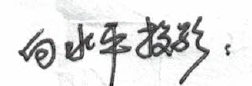 向水平投影：